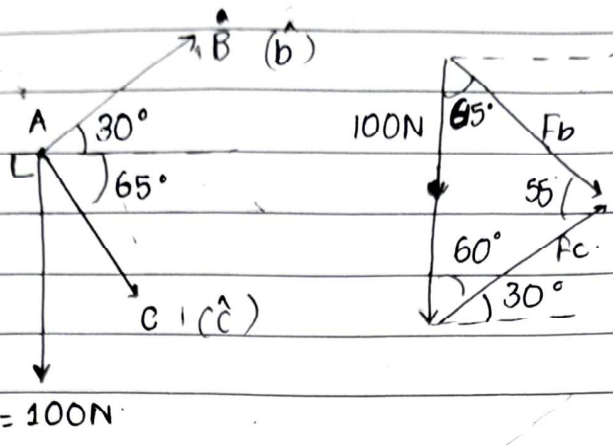 B̂ (b̂)
A
30°
65°
C , (ĉ)
= 100N
100N
65°
Fb
55
60°
Fc
30°